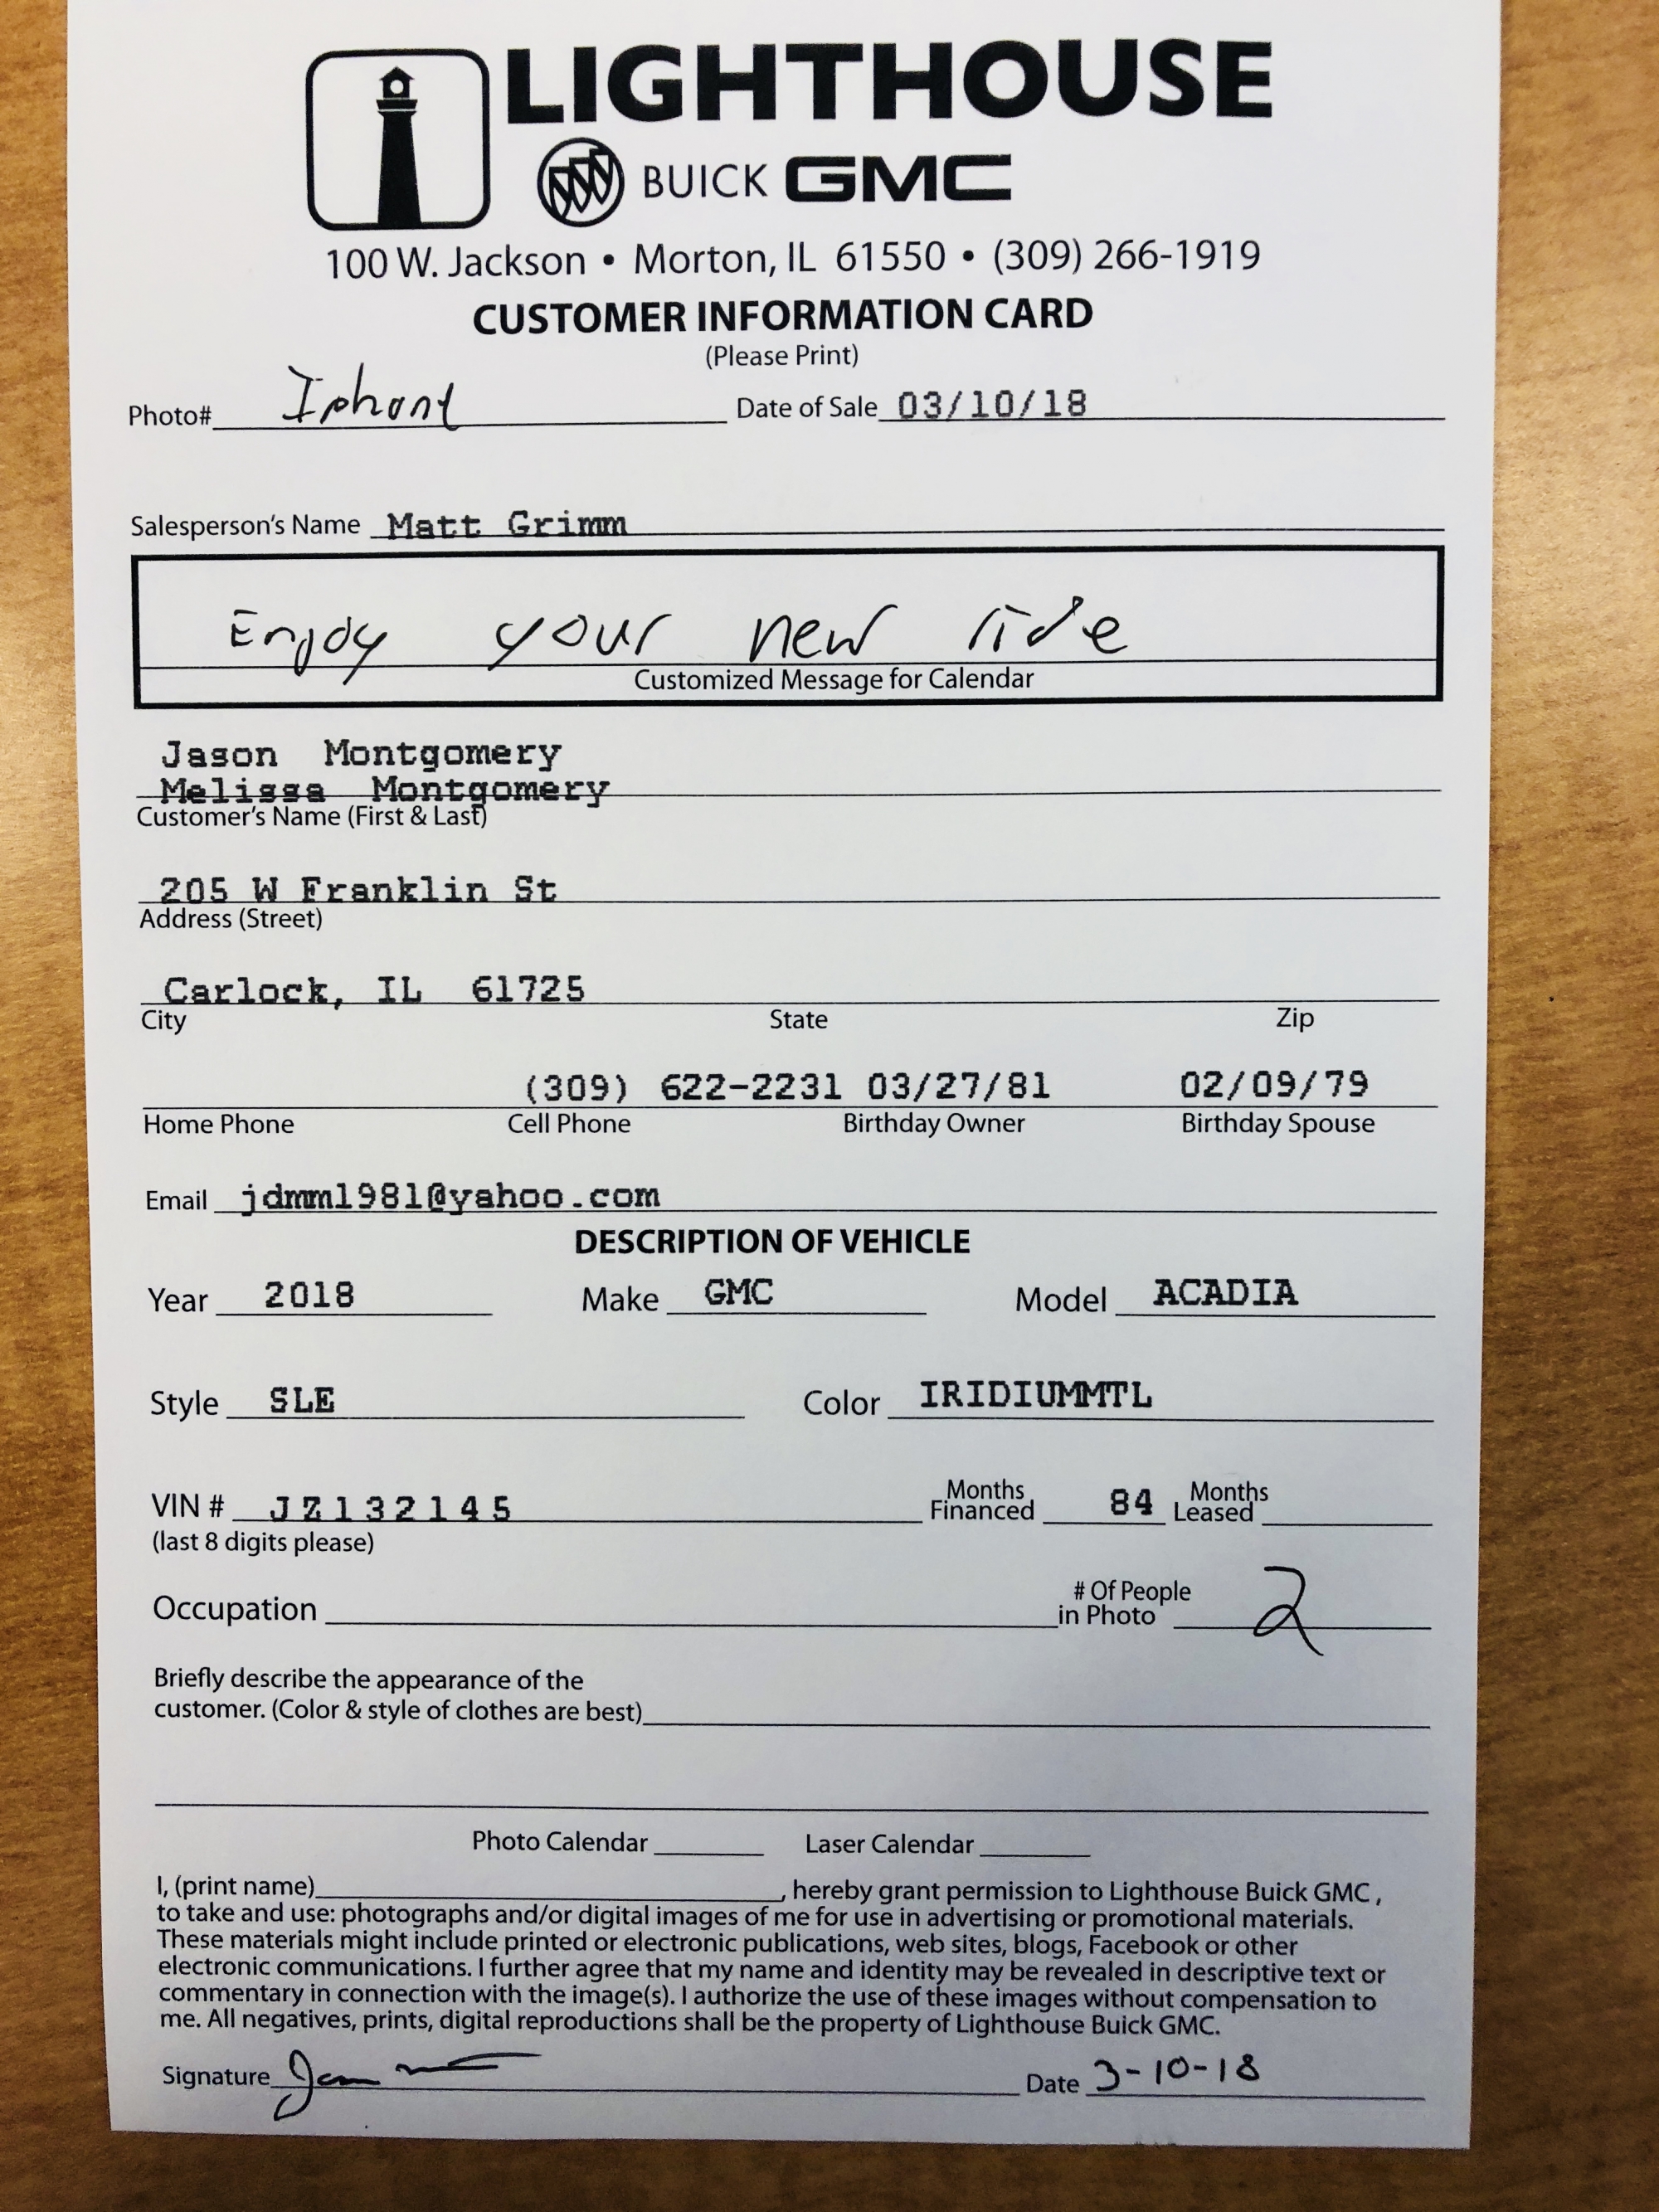 LIGHTHOUSE
BUICK GMC
100 W. Jackson • Morton, IL 61550 • (309) 266-1919
CUSTOMER INFORMATION CARD
(Please Print)
Photo# Iphone Date of Sale 03/10/18
Salesperson's Name Matt Grimm
Enjoy your new ride
Customized Message for Calendar
Jason Montgomery
Melissa Montgomery
Customer's Name (First & Last)
205 W Franklin St
Address (Street)
Carlock, IL 61725
City State Zip
(309) 622-2231 03/27/81 02/09/79
Home Phone Cell Phone Birthday Owner Birthday Spouse
Email jdmm1981@yahoo.com
DESCRIPTION OF VEHICLE
Year 2018 Make GMC Model ACADIA
Style SLE Color IRIDIUMMTL
VIN # JZ132145 Months Financed 84 Months Leased
(last 8 digits please)
Occupation # Of People in Photo 2
Briefly describe the appearance of the
customer. (Color & style of clothes are best)
Photo Calendar Laser Calendar
I, (print name) , hereby grant permission to Lighthouse Buick GMC ,
to take and use: photographs and/or digital images of me for use in advertising or promotional materials.
These materials might include printed or electronic publications, web sites, blogs, Facebook or other
electronic communications. I further agree that my name and identity may be revealed in descriptive text or
commentary in connection with the image(s). I authorize the use of these images without compensation to
me. All negatives, prints, digital reproductions shall be the property of Lighthouse Buick GMC.
Signature Date 3-10-18